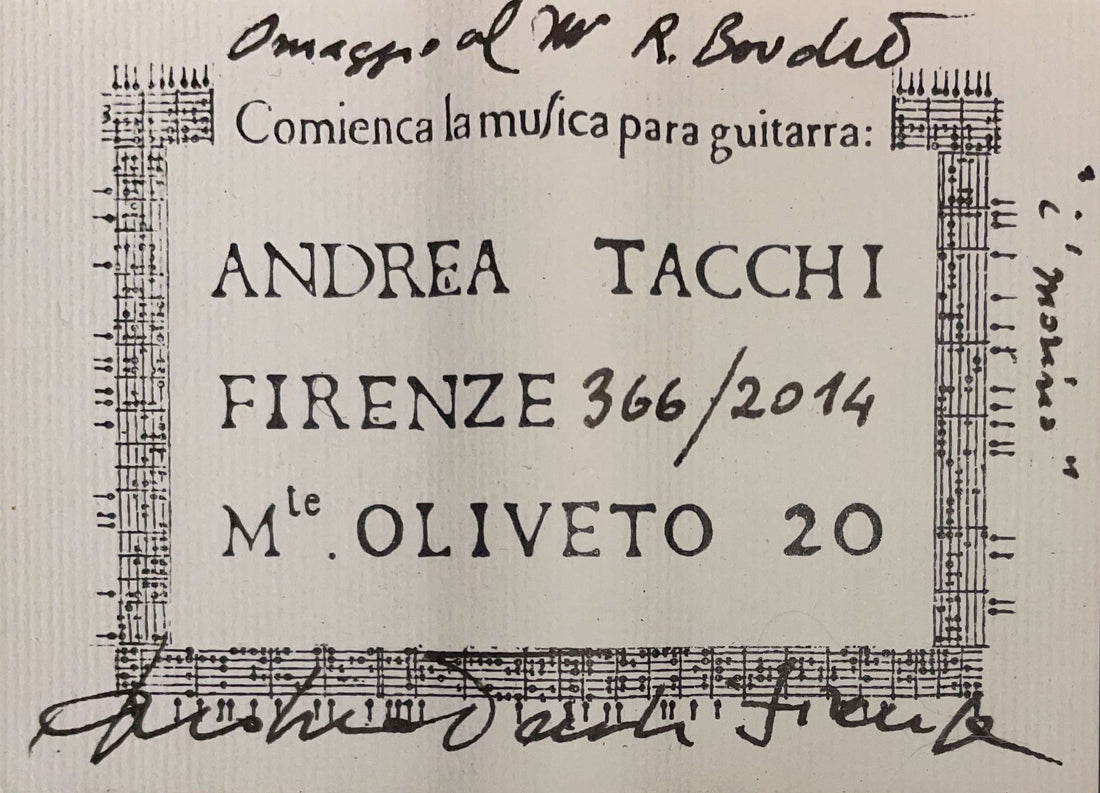 Omaggio al M° R.
Comienca la muſica para guitarra:
ANDREA TACCHI
FIRENZE 366/2014
Mte. OLIVETO 20
Andrea Tacchi Firenze